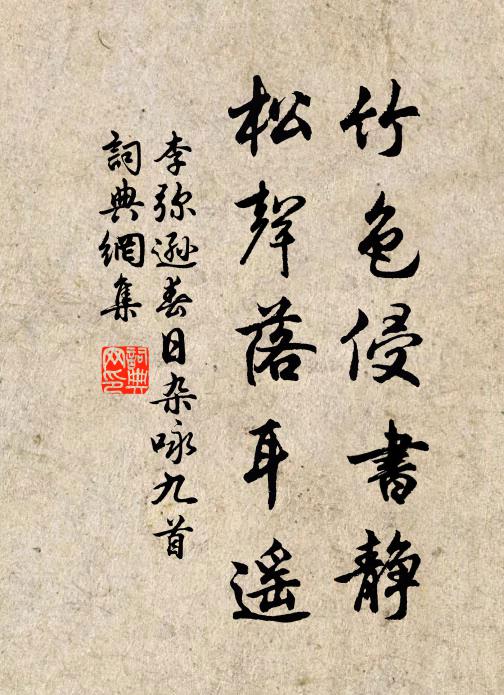 竹色侵書静
松聲落耳遥
李弥遜春日杂咏九首
詞典網集
詞典網印